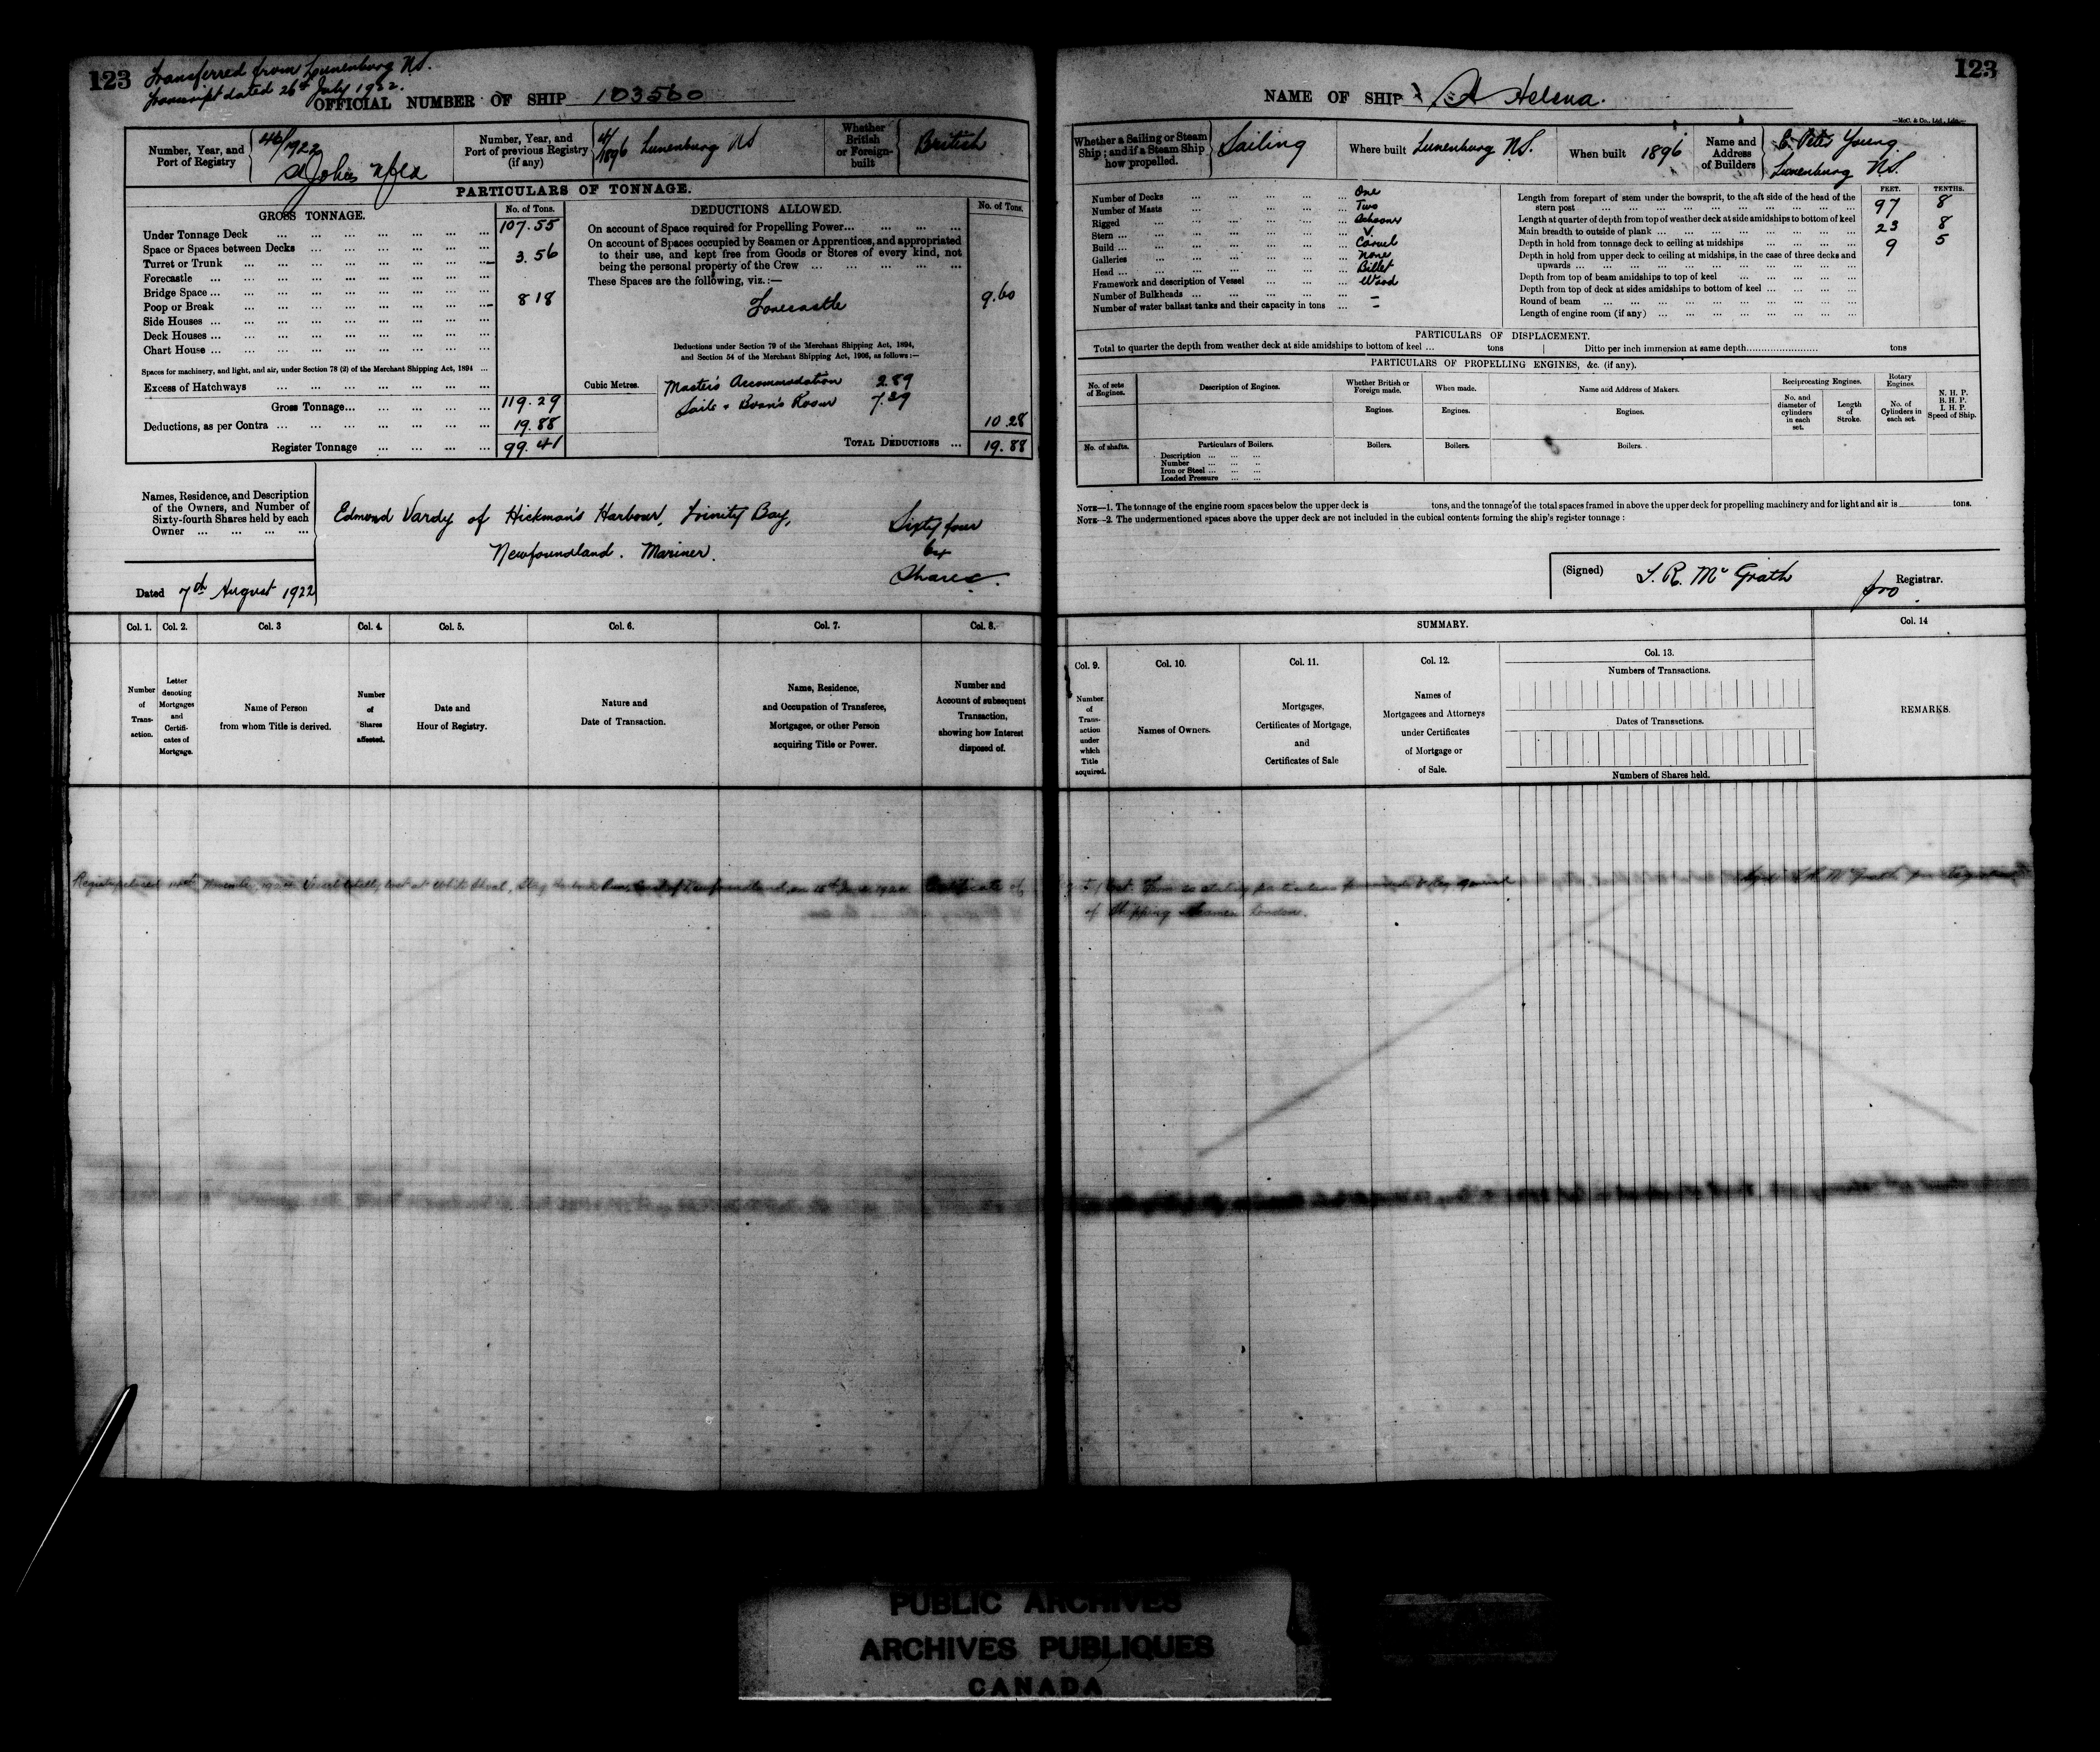 123
Transferred from Lunenburg N.S.
Transcript dated 26th July 1922.
OFFICIAL NUMBER OF SHIP 103560
Number, Year, and Port of Registry
46/1922
St Johns Nfld
Number, Year, and Port of previous Registry (if any)
4/1896 Lunenburg NS
Whether British or Foreign-built
British
PARTICULARS OF TONNAGE.
GROSS TONNAGE.
No. of Tons.
Under Tonnage Deck ... 107.55
Space or Spaces between Decks ...
Turret or Trunk ... 3.56
Forecastle ...
Bridge Space ...
Poop or Break ... 8 18
Side Houses ...
Deck Houses ...
Chart House ...
Spaces for machinery, and light, and air, under Section 78 (2) of the Merchant Shipping Act, 1894 ...
Excess of Hatchways ...
Gross Tonnage... 119.29
Deductions, as per Contra ... 19.88
Register Tonnage ... 99.41
DEDUCTIONS ALLOWED.
No. of Tons.
On account of Space required for Propelling Power...
On account of Spaces occupied by Seamen or Apprentices, and appropriated
to their use, and kept free from Goods or Stores of every kind, not
being the personal property of the Crew ...
These Spaces are the following, viz.:—
Forecastle 9.60
Deductions under Section 79 of the Merchant Shipping Act, 1894,
and Section 54 of the Merchant Shipping Act, 1906, as follows:—
Cubic Metres.
Master's Accommodation 2.89
Sails & Bosn's Room 7.39
10 28
TOTAL DEDUCTIONS ... 19.88
Names, Residence, and Description
of the Owners, and Number of
Sixty-fourth Shares held by each
Owner ...
Edmond Vardy of Hickman's Harbour, Trinity Bay,
Newfoundland. Mariner.
Sixty four
64
Shares.
Dated 7th August 1922
Col. 1.
Number of Trans-action.
Col. 2.
Letter denoting Mortgages and Certifi-cates of Mortgage.
Col. 3
Name of Person
from whom Title is derived.
Col. 4.
Number of Shares affected.
Col. 5.
Date and
Hour of Registry.
Col. 6.
Nature and
Date of Transaction.
Col. 7.
Name, Residence,
and Occupation of Transferee,
Mortgagee, or other Person
acquiring Title or Power.
Col. 8.
Number and
Account of subsequent
Transaction,
showing how Interest
disposed of.
123
NAME OF SHIP Helena.
—McC. & Co., Ltd., Ldn.—
Whether a Sailing or Steam Ship; and if a Steam Ship how propelled.
Sailing
Where built Lunenburg N.S.
When built 1896
Name and Address of Builders
Young
Lunenburg N.S.
Number of Decks ... One
Number of Masts ... Two
Rigged ... Schooner
Stem ...
Build ... Carvel
Galleries ... None
Head ... Billet
Framework and description of Vessel ... Wood
Number of Bulkheads ... –
Number of water ballast tanks and their capacity in tons ... –
FEET. TENTHS.
Length from forepart of stem under the bowsprit, to the aft side of the head of the
stern post ... 97 8
Length at quarter of depth from top of weather deck at side amidships to bottom of keel
Main breadth to outside of plank ... 23 8
Depth in hold from tonnage deck to ceiling at midships ... 9 5
Depth in hold from upper deck to ceiling at midships, in the case of three decks and
upwards ...
Depth from top of beam amidships to top of keel ...
Depth from top of deck at sides amidships to bottom of keel ...
Round of beam ...
Length of engine room (if any) ...
PARTICULARS OF DISPLACEMENT.
Total to quarter the depth from weather deck at side amidships to bottom of keel ... tons
Ditto per inch immersion at same depth... tons
PARTICULARS OF PROPELLING ENGINES, &c. (if any).
No. of sets of Engines.
Description of Engines.
Whether British or Foreign made.
When made.
Name and Address of Makers.
Reciprocating Engines.
Rotary Engines.
N. H. P.
B. H. P.
I. H. P.
Speed of Ship.
No. and diameter of cylinders in each set.
Length of Stroke.
No. of Cylinders in each set.
Engines.
Engines.
Engines.
No. of shafts.
Particulars of Boilers.
Boilers.
Boilers.
Boilers.
Description ...
Number ...
Iron or Steel ...
Loaded Pressure ...
NOTE—1. The tonnage of the engine room spaces below the upper deck is tons, and the tonnage of the total spaces framed in above the upper deck for propelling machinery and for light and air is tons.
NOTE—2. The undermentioned spaces above the upper deck are not included in the cubical contents forming the ship's register tonnage:
(Signed) Mc Grath
pro Registrar.
SUMMARY.
Col. 9.
Number of Trans-action under which Title acquired.
Col. 10.
Names of Owners.
Col. 11.
Mortgages,
Certificates of Mortgage,
and
Certificates of Sale
Col. 12.
Names of
Mortgagees and Attorneys
under Certificates
of Mortgage or
of Sale.
Col. 13.
Numbers of Transactions.
Dates of Transactions.
Numbers of Shares held.
Col. 14
REMARKS.
Registry closed Vessel totally lost at White Shoal, Certificate of
particulars General
of Shipping & Seamen London.
PUBLIC ARCHIVES
ARCHIVES PUBLIQUES
CANADA